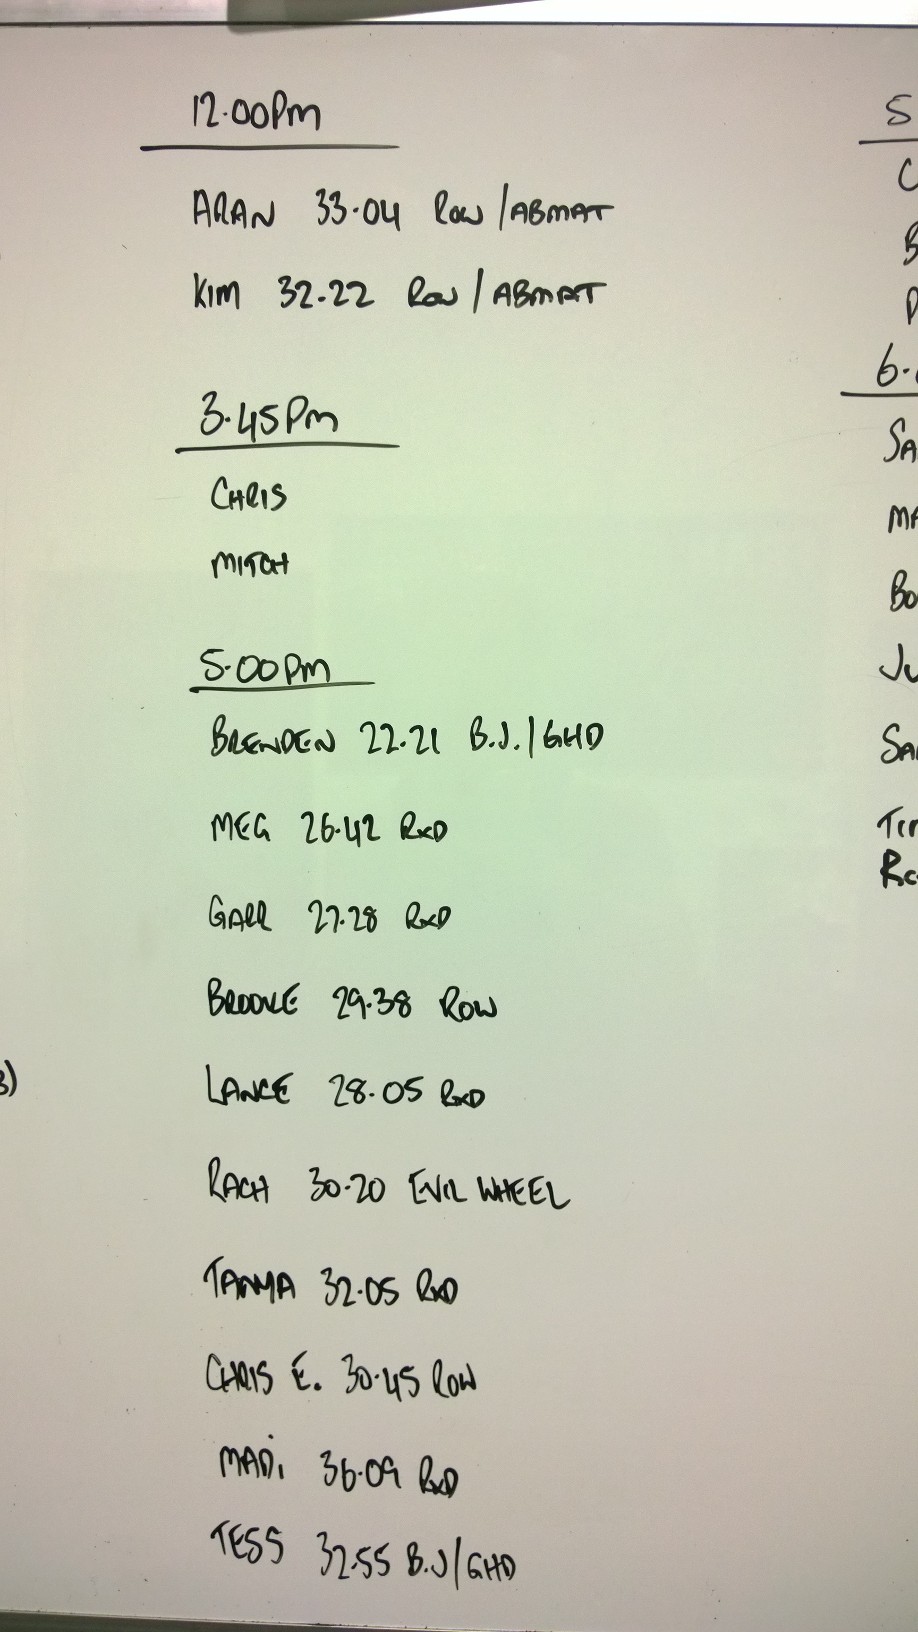 12.00PM
ARAN 33.04 ROW/ABMAT
KIM 32.22 ROW/ABMAT
3.45PM
CHRIS
MITCH
5.00PM
BRENDEN 22.21 B.J./GHD
MEG 26.42 RXD
GARR 27.28 RXD
BROOKE 29.38 ROW
LANCE 28.05 RXD
RACH 30.20 EVIL WHEEL
TANYA 32.05 RXD
CHRIS E. 30.45 ROW
MADI 36.09 RXD
TESS 32.55 B.J/GHD